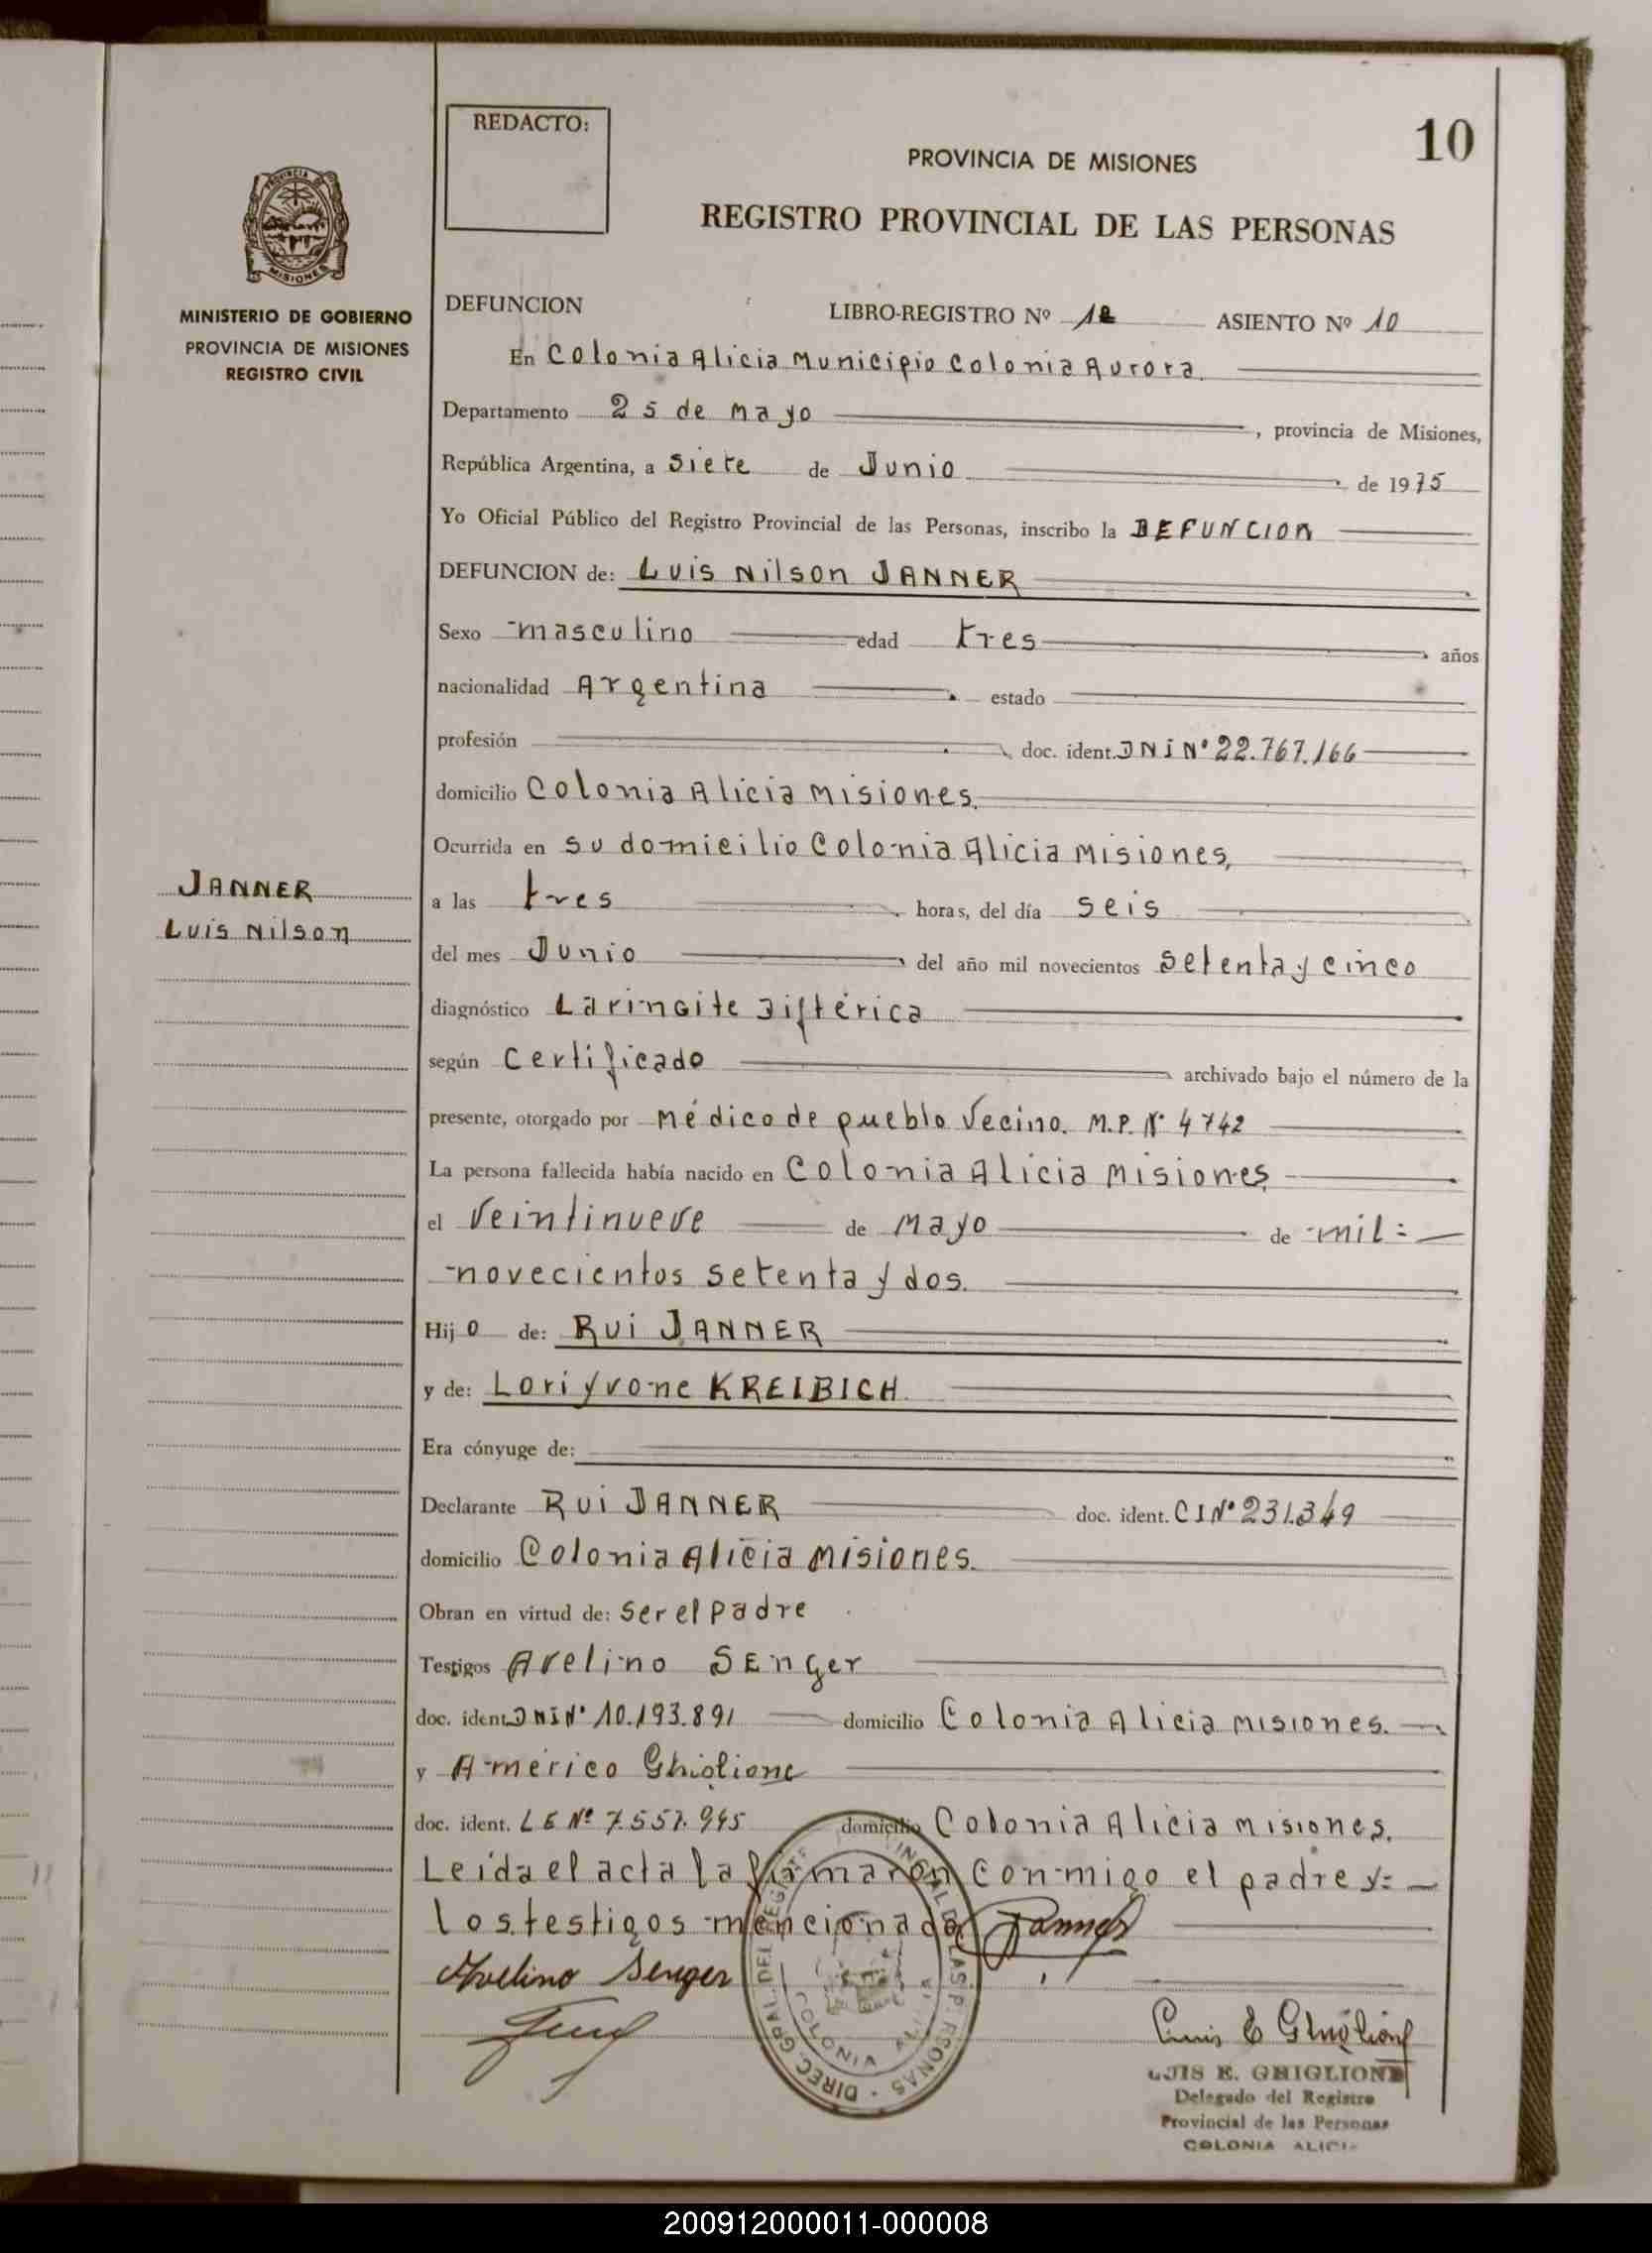 REDACTO:
10
PROVINCIA DE MISIONES
REGISTRO PROVINCIAL DE LAS PERSONAS
PROVINCIA DE
MISIONES
MINISTERIO DE GOBIERNO
PROVINCIA DE MISIONES
REGISTRO CIVIL
DEFUNCION LIBRO-REGISTRO Nº ASIENTO Nº 10
En Colonia Alicia Municipio Colonia Aurora
Departamento 25 de Mayo, provincia de Misiones,
República Argentina, a siete de Junio de 1975
Yo Oficial Público del Registro Provincial de las Personas, inscribo la DEFUNCION
DEFUNCION de: Luis Nilson JANNER
Sexo masculino edad tres años
nacionalidad Argentina estado
profesión doc. ident. DNI Nº 22.767.166
domicilio Colonia Alicia Misiones.
Ocurrida en su domicilio Colonia Alicia Misiones,
JANNER
Luis Nilson
a las tres horas, del día seis
del mes Junio del año mil novecientos setenta y cinco
diagnóstico Laringite Diftérica
según Certificado archivado bajo el número de la
presente, otorgado por Médico de pueblo Vecino. M.P. Nº 4742
La persona fallecida había nacido en Colonia Alicia Misiones
el Veintinueve de Mayo de mil =
novecientos setenta y dos.
Hijo de: Rui JANNER
y de: Lori yvone KREIBICH.
Era cónyuge de:
Declarante Rui JANNER doc. ident. CI Nº 231.349
domicilio Colonia Alicia Misiones.
Obran en virtud de: Ser el padre
Testigos Avelino SEnger
doc. ident. DNI Nº 10.193.891 domicilio Colonia Alicia Misiones.
y Américo Ghiglione
doc. ident. LE Nº 7.557.945 domicilio Colonia Alicia Misiones.
Leída el acta la firmaron conmigo el padre y =
los testigos mencionado Janner
Avelino Senger
Luis E Ghiglione
LUIS E. GHIGLIONE
Delegado del Registro
Provincial de las Personas
COLONIA ALICI
DIREC. GRAL. DEL REGISTR
COLONIA ALICIA
200912000011-000008